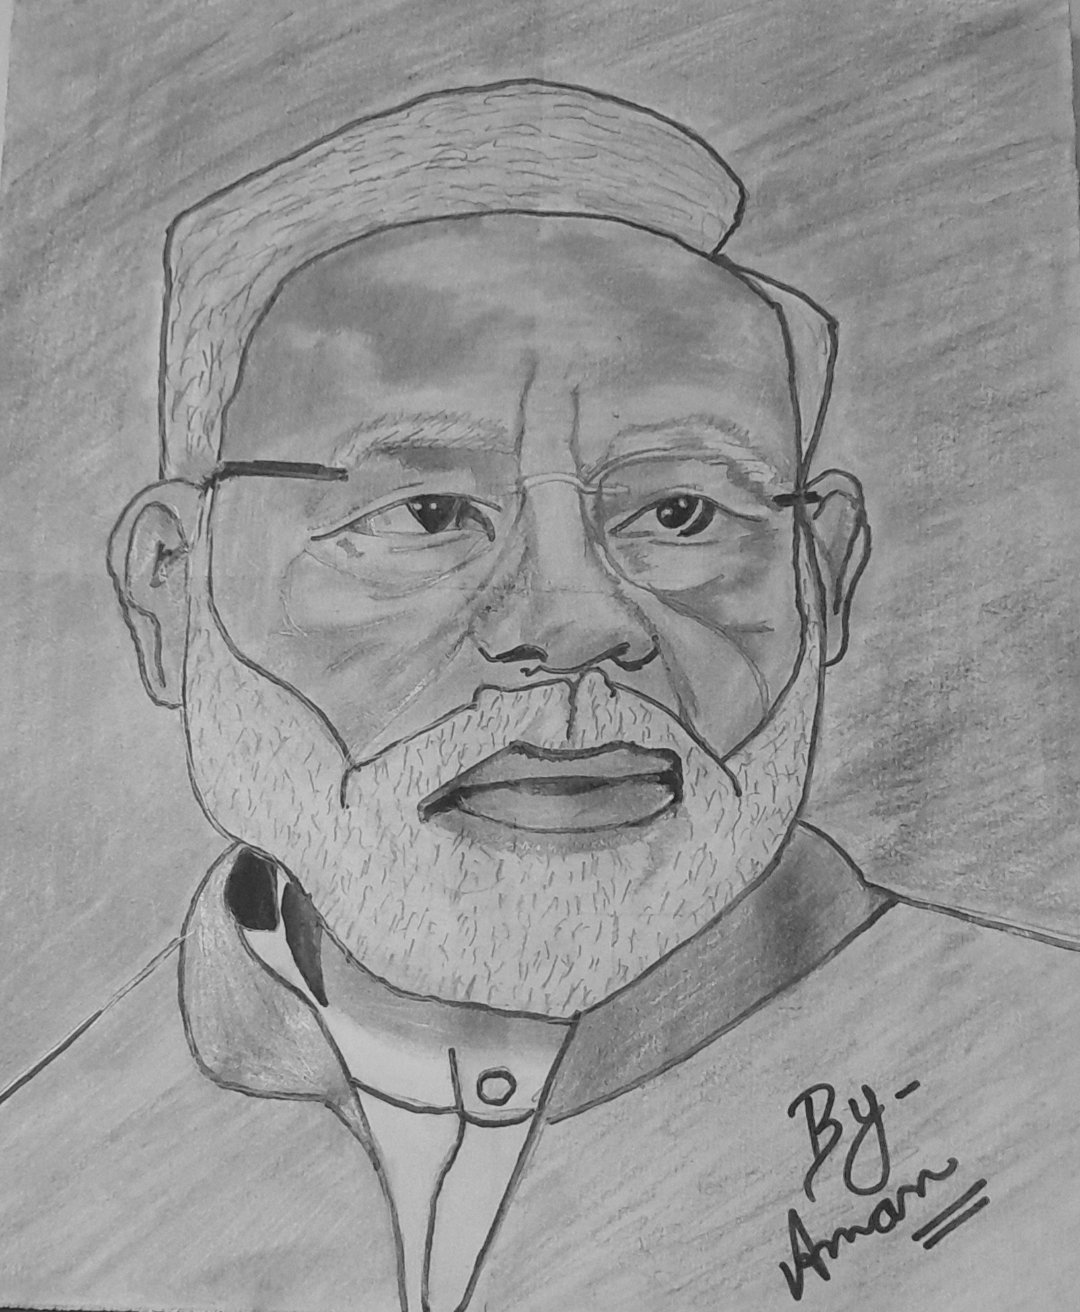 By-
Aman